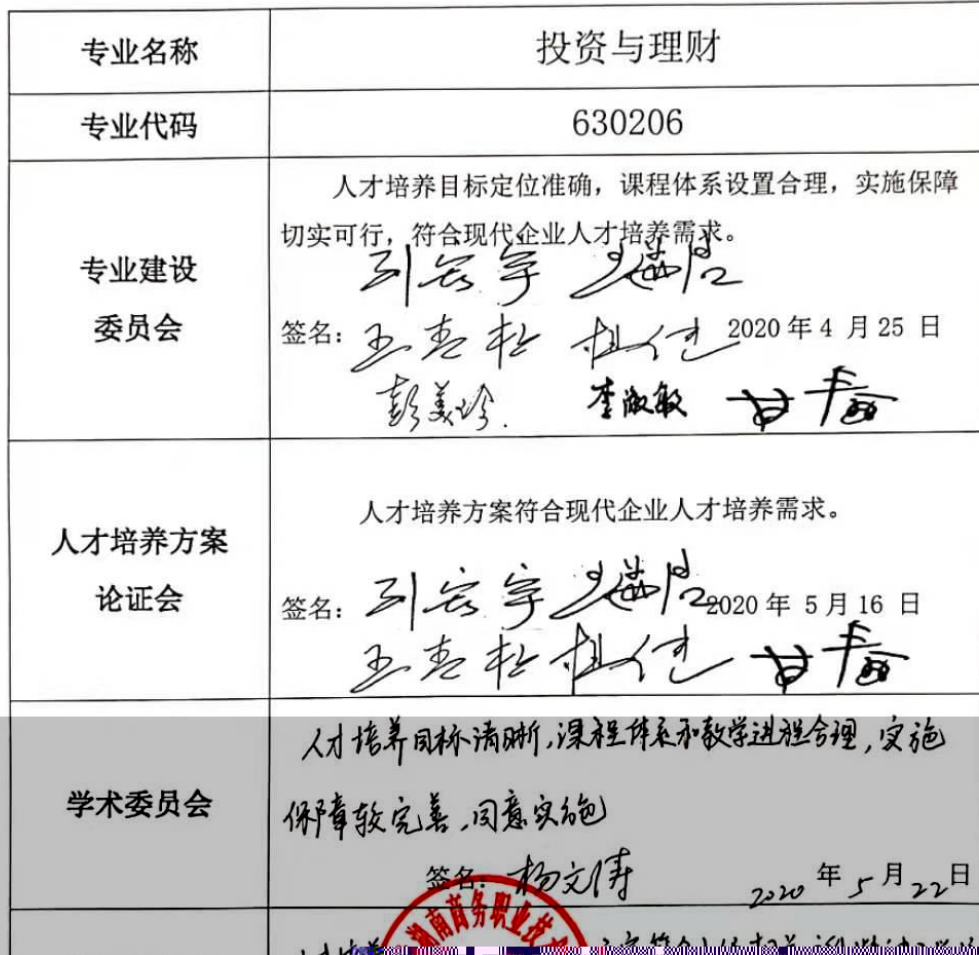 专业名称
投资与理财
专业代码
630206
专业建设
委员会
人才培养目标定位准确，课程体系设置合理，实施保障
切实可行，符合现代企业人才培养需求。
签名：
2020 年 4 月 25 日
彭美珍
李淑敏
人才培养方案
论证会
人才培养方案符合现代企业人才培养需求。
签名：
2020 年 5 月 16 日
学术委员会
人才培养目标清晰，课程体系和教学进程合理，实施
保障较完善，同意实施
签名：杨文涛
2020 年 5 月 22 日
湖南商务职业技